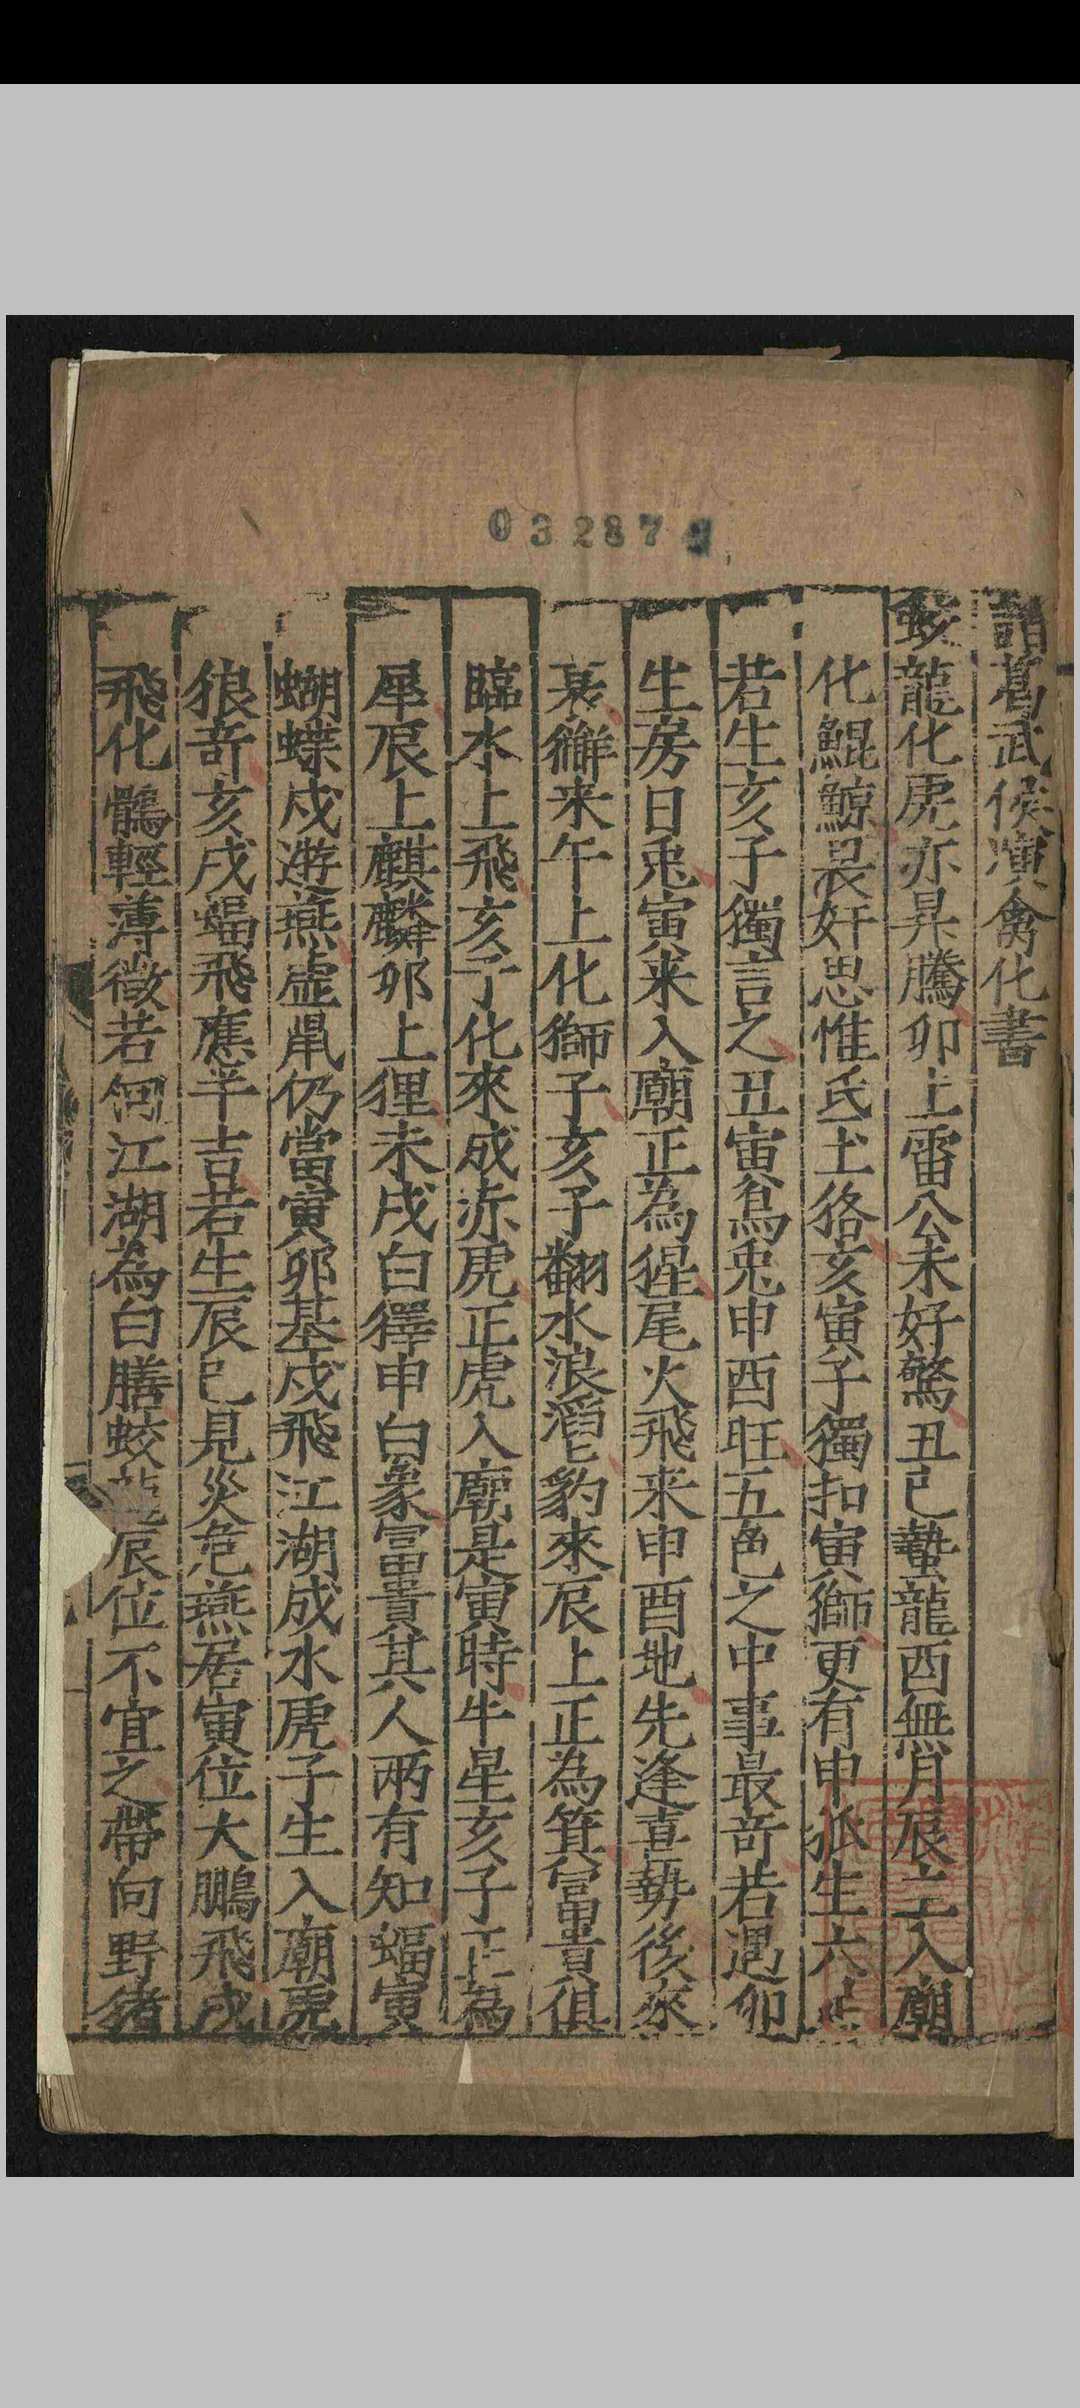 03287
諸葛武侯演禽化書
蛟龍化虎亦昇騰卯上雷公未好驚丑巳蟄龍酉無用辰亡入廟
化鯤鯨辰奸思惟氐土狢亥寅子獨扣寅獅更有申狐生六
若生亥子獨言之丑寅爲兎申酉旺五色之中事最竒若遇卯
生房日兎寅来入廟正為猩尾火飛来申酉地先逢喜勢後來
衰獬来午上化獅子亥子翻水浪滔巳豹來辰上正為箕富貴俱
臨水上飛亥子化來成赤虎正虎入廟是寅時牛星亥子正為
犀辰上麒麟卯上狸未戌白獐申白象富貴其人兩有知蝠寅
蝴蝶戌遊燕虛鼠仍當寅卯基戌飛江湖成水虎子生入廟兎
狼竒亥戌蝠飛應半吉若生辰巳見災危燕居寅位大鵬飛戌
飛化鶻輕薄微若何江湖為白膳蛟龍辰位不宜之帶向野猪